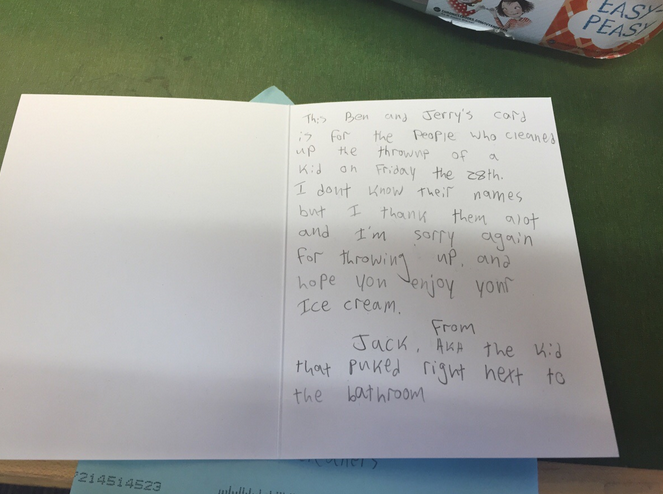 EASY
PEASY
This Ben and Jerry's card
is for the people who cleaned
up the throwup of a
kid on Friday the 28th.
I dont know their names
but I thank them alot
and I'm sorry again
for throwing up, and
hope you enjoy your
Ice cream.
From
Jack, AKA the kid
that puked right next to
the bathroom
214514523